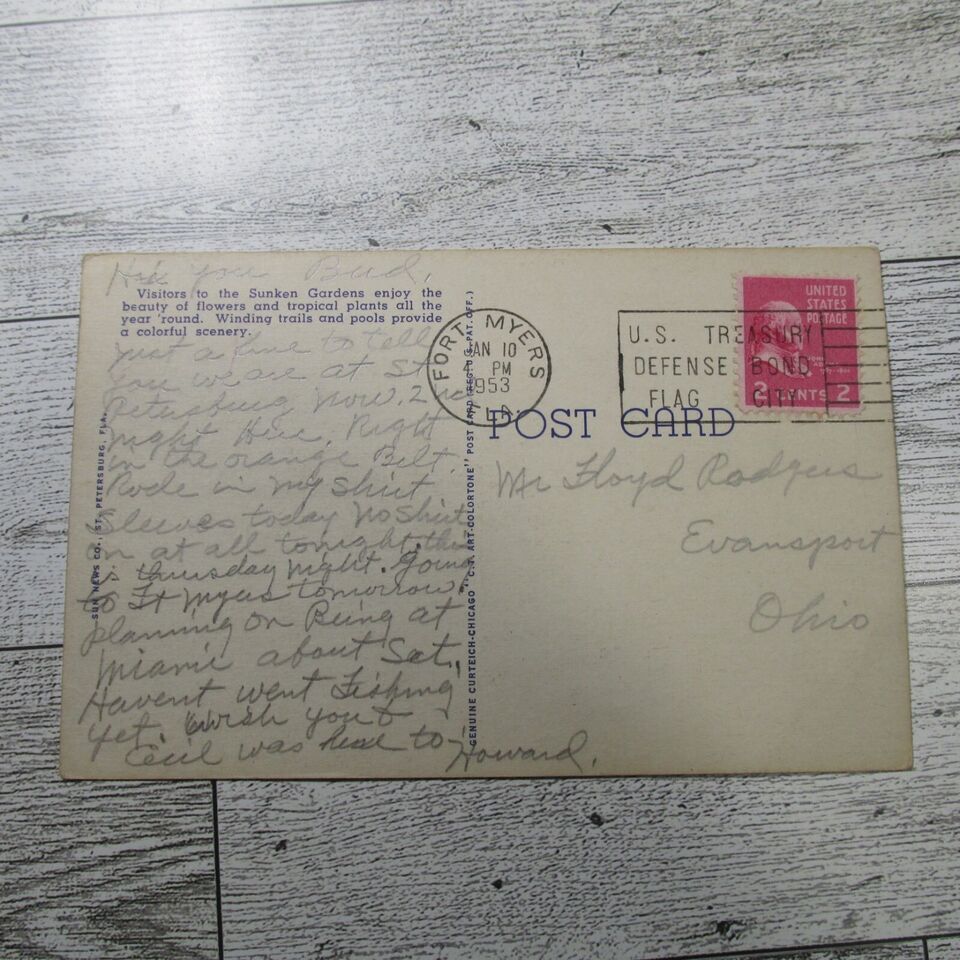 Hi you Bud,
Visitors to the Sunken Gardens enjoy the
beauty of flowers and tropical plants all the
year 'round. Winding trails and pools provide
a colorful scenery.
Just a line to tell
you we are at St
Petersburg now. 2nd
night Here. Right
in the orange Belt.
Rode in my shirt
sleeves today No shirt
on at all tonight. this
is thursday night. Going
to Ft Myers tomorrow.
planning on Being at
Miami about Sat.
Havent went Fishing
yet. Wish you &
Cecil was here to
Howard.
SUN NEWS CO., ST. PETERSBURG, FLA.
GENUINE CURTEICH-CHICAGO "C.T. ART-COLORTONE" POST CARD (REG. U.S. PAT. OFF.)
FORT MYERS
JAN 10
PM
1953
FLA.
U.S. TREASURY
DEFENSE BOND
FLAG CITY
UNITED
STATES
POSTAGE
2 CENTS 2
POST CARD
Mr Floyd Rodgers
Evansport
Ohio